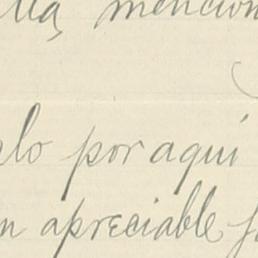 mencion
lo por aquí
n apreciable